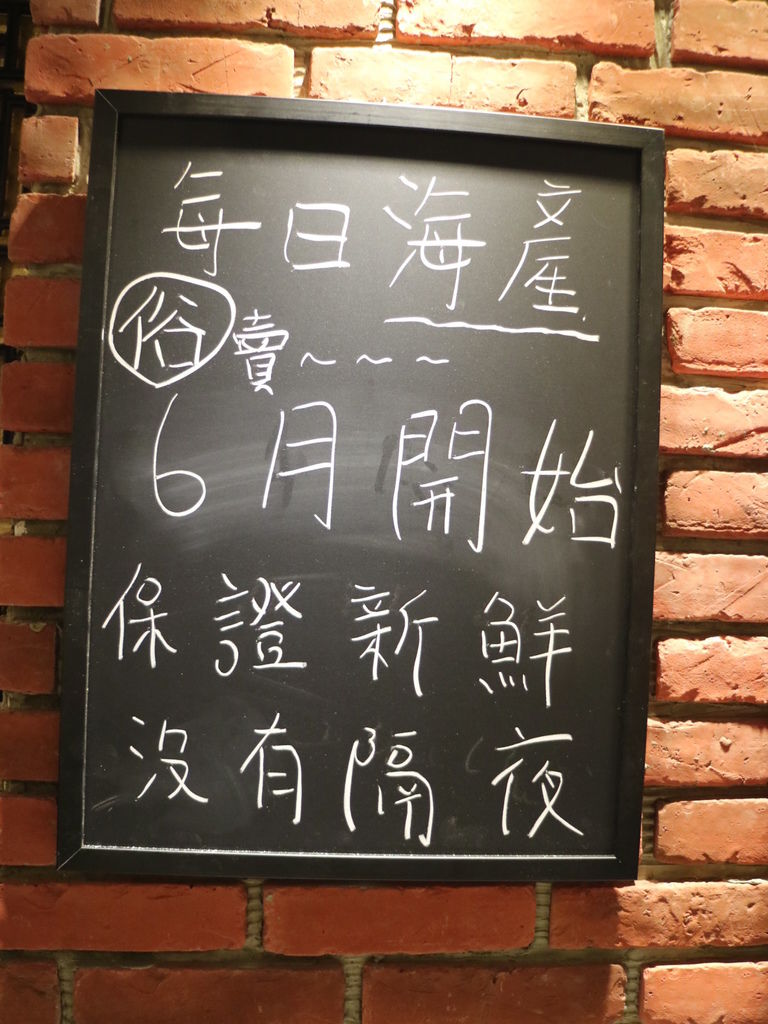 每日海產
俗賣～～～
6月開始
保證新鮮
沒有隔夜